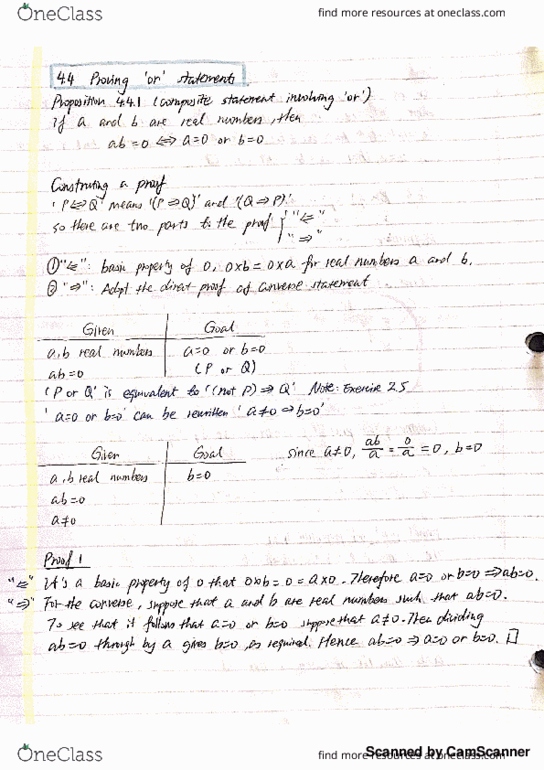 OneClass
find more resources at oneclass.com
4.4 Proving 'or' statements
Proposition 4.4.1 (composite statement involving 'or')
If a and b are real numbers, then
ab=0 ⇔ a=0 or b=0
Constructing a proof
'P⇔Q' means '(P⇒Q)' and '(Q⇒P)'
so there are two parts to the proof { "⇐"
"⇒"
① "⇐": basic property of 0, 0×b = 0×a for real numbers a and b.
② "⇒": Adpt the direct proof of converse statement
Given Goal
a,b real numbers a=0 or b=0
ab=0 (P or Q)
'P or Q' is equivalent to '(not P) ⇒ Q' Note: Exercise 2.5
'a=0 or b=0' can be rewritten 'a≠0 ⇒ b=0'
Given Goal since a≠0, ab/a = 0/a = 0, b=0
a,b real numbers b=0
ab=0
a≠0
Proof 1
"⇐" It's a basic property of 0 that 0×b=0=a×0. Therefore a=0 or b=0 ⇒ ab=0.
"⇒" For the converse, suppose that a and b are real numbers such that ab=0.
To see that it follows that a=0 or b=0 suppose that a≠0. Then dividing
ab=0 through by a gives b=0, as required. Hence ab=0 ⇒ a=0 or b=0. □
OneClass
find more resources at oneclass.com
Scanned by CamScanner